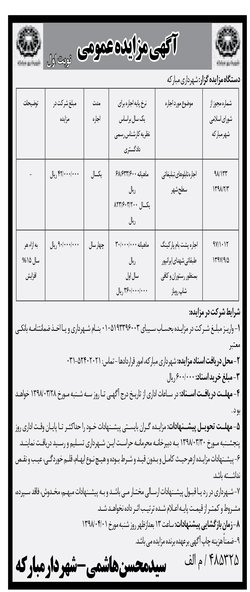 آگهی مزایده عمومی
نوبت اول
دستگاه مزایده گزار: شهرداری مبارکه
شماره مجوز از شورای اسلامی شهر مبارکه
موضوع مورد اجاره
نرخ پایه اجاره برای یک سال براساس نظریه کارشناس رسمی دادگستری
مدت اجاره
مبلغ شرکت در مزایده
توضیحات
۹۸/۱۳۳
۱۳۹۸/۲/۳
اجاره تابلوهای تبلیغاتی سطح شهر
ماهیانه ۶۸/۶۳۳/۶۰۰ ریال
یکسال ۸۲۳/۶۰۳/۲۰۰ ریال
یکسال
۴۲/۰۰۰/۰۰۰ ریال
-
۹۷/۱۰۱۲
۱۳۹۷/۹/۵
اجاره پشت بام پارکینگ طبقاتی شهدای ایرانپور بمنظور رستوران و کافی شاپ روباز
ماهیانه ۳۰/۰۰۰/۰۰۰ ریال
سال اول ۳۶۰/۰۰۰/۰۰۰ ریال
چهار سال
۹۰/۰۰۰/۰۰۰ ریال
به ازاء هر سال ۱۵% افزایش
شرایط شرکت در مزایده:
۱- واریز مبلغ شرکت در مزایده بحساب سیبای ۰۱۰۵۱۹۳۳۹۶۰۰۳ بنام شهرداری و یا اخذ ضمانتنامه بانکی
معتبر
۲- محل دریافت اسناد مزایده: شهرداری مبارکه، امور قراردادها - تماس: ۵۲۴۰۲۰۲۱-۰۳۱
۳- مبلغ خرید اسناد: ۶۰۰/۰۰۰ ریال
۴- مهلت دریافت اسناد: در ساعات اداری از تاریخ درج آگهی تا روز سه شنبه مورخ ۱۳۹۸/۰۳/۲۸
۵- مهلت تحویل پیشنهادات: مزایده گران بایستی پیشنهادات خود را حداکثر تا پایان وقت اداری روز
پنجشنبه مورخ ۱۳۹۸/۰۳/۳۰ به دبیرخانه محرمانه حراست این شهرداری تسلیم و رسید دریافت نمایند
۶- پیشنهادات مزایده از هر حیث کامل و بدون قید و شرط بوده و هیچ نوع ابهام، قلم خوردگی، عیب و نقص
نداشته باشد.
۷- شهرداری در رد یا قبول پیشنهادات ارسالی مختار می باشد و به پیشنهادات مبهم، مخدوش، فاقد سپرده،
مشروط و کمتر از قیمت پایه اعلام شده ترتیب اثر داده نخواهد شد.
۸- زمان بازگشایی پیشنهادات: ساعت ۱۳ بعدازظهر روز شنبه مورخ ۱۳۹۸/۰۴/۰۱
۹- ضمناً هزینه چاپ آگهی بر عهده برنده مزایده می باشد.
۴۸۵۳۲۵ / م الف
سیدمحسن هاشمی - شهردار مبارکه